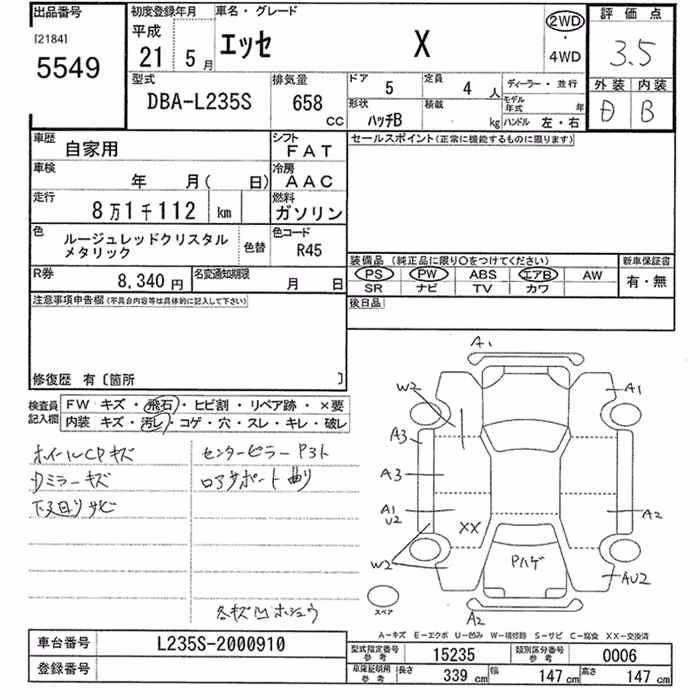 出品番号 初度登録年月 車名・グレード 評価点
[2184] 平成 エッセ X 2WD・4WD 3.5
5549 21 5月
型式 排気量 ドア 5 定員 4人 ディーラー・並行 外装 内装
DBA-L235S 658 CC 形状 ハッチB 積載 kg モデル年式 年 ハンドル 左・右 D B
車歴 自家用 シフト FAT セールスポイント(正常に機能するものに限ります)
車検 年 月( 日) 冷房 AAC
走行 8万1千112 km 燃料 ガソリン
色 ルージュレッドクリスタル 色替 色コード
メタリック R45
装備品(純正品に限り○をつけてください) 新車保証書
PS PW ABS エアB AW 有・無
SR ナビ TV カワ
R券 8,340円 名変通知期限 月 日
後日品
注意事項申告欄(不具合内容等は具体的に記入して下さい)
修復歴 有〔箇所 〕
検査員記入欄 FW キズ・飛石・ヒビ割・リペア跡・×要
内装 キズ・汚レ・コゲ・穴・スレ・キレ・破レ
ホイールCPキズ センターピラーP3ト
Dミラーキズ ロアサポート曲リ
下廻リサビ
各キズ凹ホショウ
A1
W2 A1
A3
A3
A1 U2 XX A2
W2 Pハゲ AU2
スペア A2
A-キズ E-エクボ U-凹み W-補修跡 S-サビ C-腐食 XX-交換済
車台番号 L235S-2000910
登録番号
型式指定番号 参考 15235 類別区分番号 参考 0006
車庫証明用 参考 長さ 339 cm 幅 147 cm 高さ 147 cm